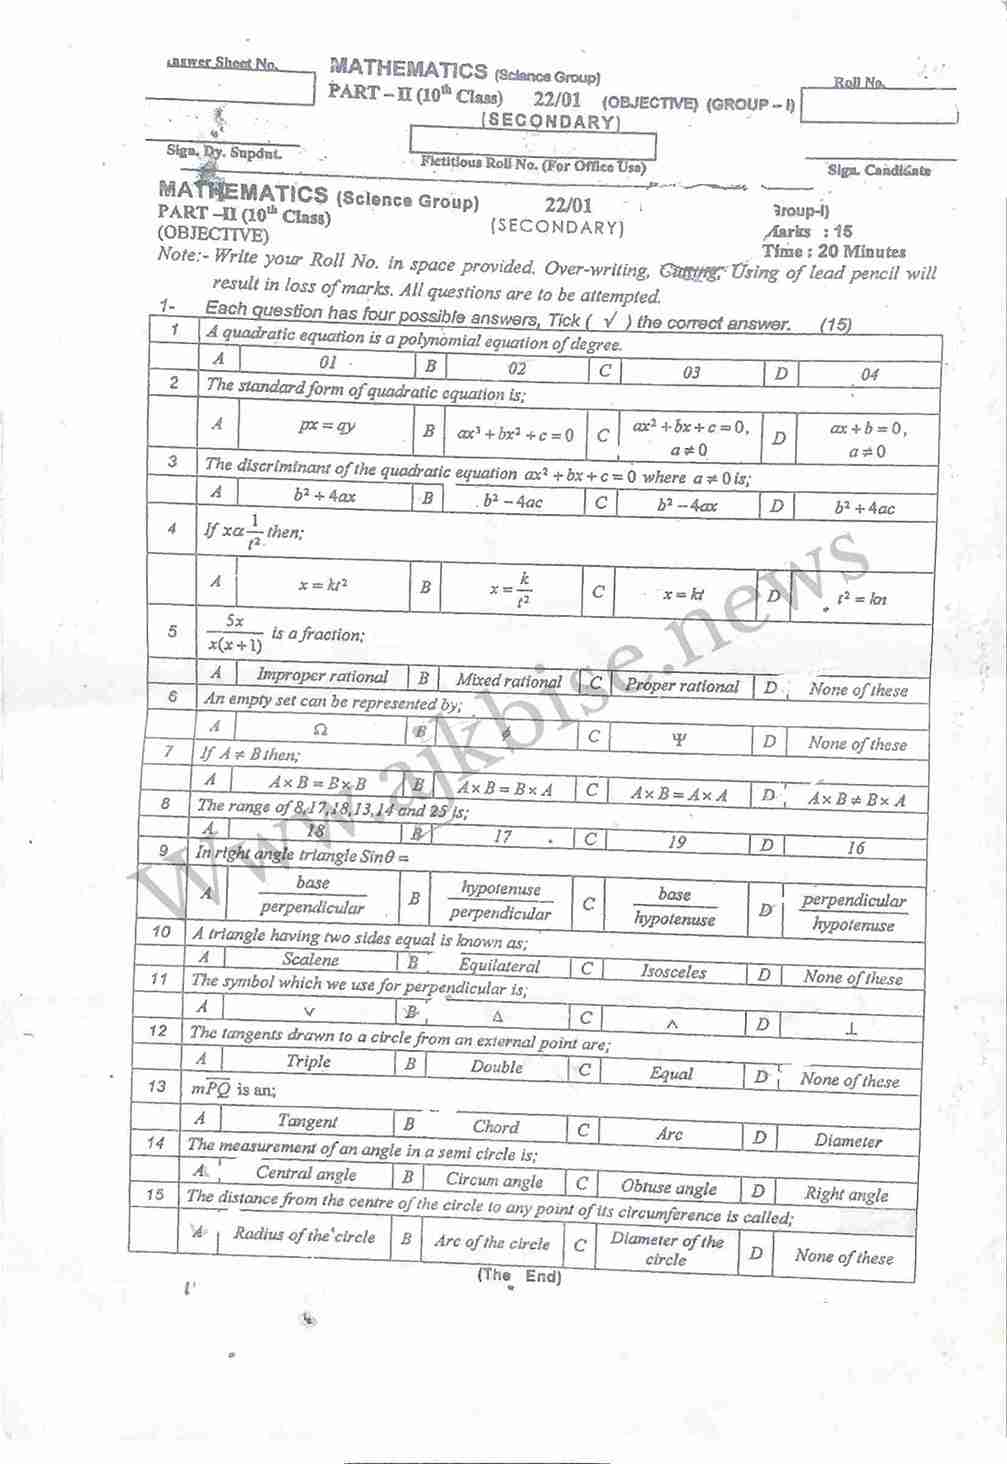 Answer Sheet No.
MATHEMATICS (Science Group)
Roll No.
PART – II (10th Class) 22/01 (OBJECTIVE) (GROUP – I)
(SECONDARY)
Sign. Dy. Supdnt.
Fictitious Roll No. (For Office Use)
Sign. Candidate
MATHEMATICS (Science Group) 22/01 Group-I)
PART –II (10th Class) (SECONDARY) Marks : 15
(OBJECTIVE) Time : 20 Minutes
Note:- Write your Roll No. in space provided. Over-writing, Cutting, Using of lead pencil will
result in loss of marks. All questions are to be attempted.
1- Each question has four possible answers, Tick ( √ ) the correct answer. (15)
1 A quadratic equation is a polynomial equation of degree.
A 01 B 02 C 03 D 04
2 The standard form of quadratic equation is;
A px = qy B ax³ + bx² + c = 0 C ax² + bx + c = 0, a ≠ 0 D ax + b = 0, a ≠ 0
3 The discriminant of the quadratic equation ax² + bx + c = 0 where a ≠ 0 is;
A b² + 4ax B b² – 4ac C b² – 4ax D b² + 4ac
4 If xα 1/t² then;
A x = kt² B x = k/t² C x = kt D t² = kn
5 5x/x(x + 1) is a fraction;
A Improper rational B Mixed rational C Proper rational D None of these
6 An empty set can be represented by;
A Ω B ϕ C Ψ D None of these
7 If A ≠ B then;
A A × B = B × B B A × B = B × A C A × B = A × A D A × B ≠ B × A
8 The range of 8,17,18,13,14 and 25 is;
A 18 B 17 C 19 D 16
9 In right angle triangle Sinθ =
A base/perpendicular B hypotenuse/perpendicular C base/hypotenuse D perpendicular/hypotenuse
10 A triangle having two sides equal is known as;
A Scalene B Equilateral C Isosceles D None of these
11 The symbol which we use for perpendicular is;
A ∨ B Δ C ∧ D ⊥
12 The tangents drawn to a circle from an external point are;
A Triple B Double C Equal D None of these
13 mPQ̅ is an;
A Tangent B Chord C Arc D Diameter
14 The measurement of an angle in a semi circle is;
A Central angle B Circum angle C Obtuse angle D Right angle
15 The distance from the centre of the circle to any point of its circumference is called;
A Radius of the circle B Arc of the circle C Diameter of the circle D None of these
(The End)
www.ajkbise.news